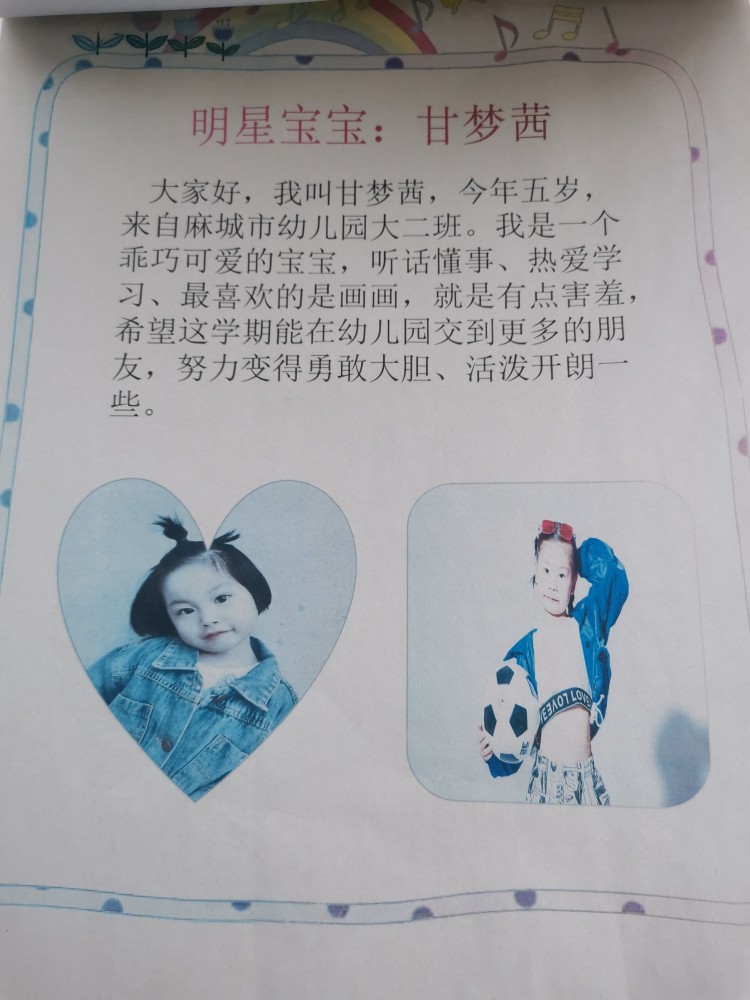 明星宝宝：甘梦茜
大家好，我叫甘梦茜，今年五岁，
来自麻城市幼儿园大二班。我是一个
乖巧可爱的宝宝，听话懂事、热爱学
习、最喜欢的是画画，就是有点害羞，
希望这学期能在幼儿园交到更多的朋
友，努力变得勇敢大胆、活泼开朗一
些。